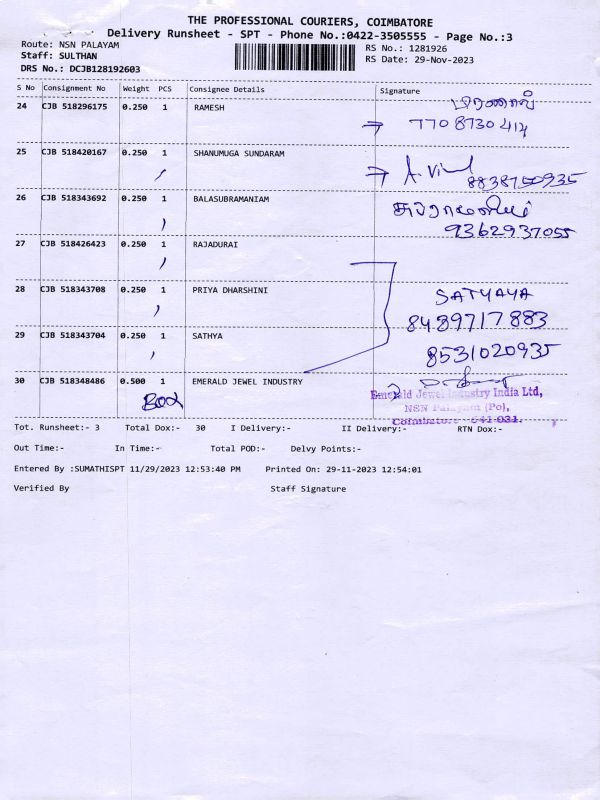 THE PROFESSIONAL COURIERS, COIMBATORE
Delivery Runsheet - SPT - Phone No.:0422-3505555 - Page No.:3
Route: NSN PALAYAM
RS No.: 1281926
Staff: SULTHAN
RS Date: 29-Nov-2023
DRS No.: DCJB128192603
S No Consignment No Weight PCS Consignee Details Signature
24 CJB 518296175 0.250 1 RAMESH
7708730414
25 CJB 518420167 0.250 1 SHANUMUGA SUNDARAM
8838750935
26 CJB 518343692 0.250 1 BALASUBRAMANIAM
9362937055
27 CJB 518426423 0.250 1 RAJADURAI
28 CJB 518343708 0.250 1 PRIYA DHARSHINI SATHYA
8489717883
29 CJB 518343704 0.250 1 SATHYA
8531020935
30 CJB 518348486 0.500 1 EMERALD JEWEL INDUSTRY
Box
Emerald Jewel Industry India Ltd,
NSN Palayam (Po),
Coimbatore - 641 031.
Tot. Runsheet:- 3 Total Dox:- 30 I Delivery:- II Delivery:- RTN Dox:-
Out Time:- In Time:- Total POD:- Delvy Points:-
Entered By :SUMATHISPT 11/29/2023 12:53:40 PM Printed On: 29-11-2023 12:54:01
Verified By Staff Signature